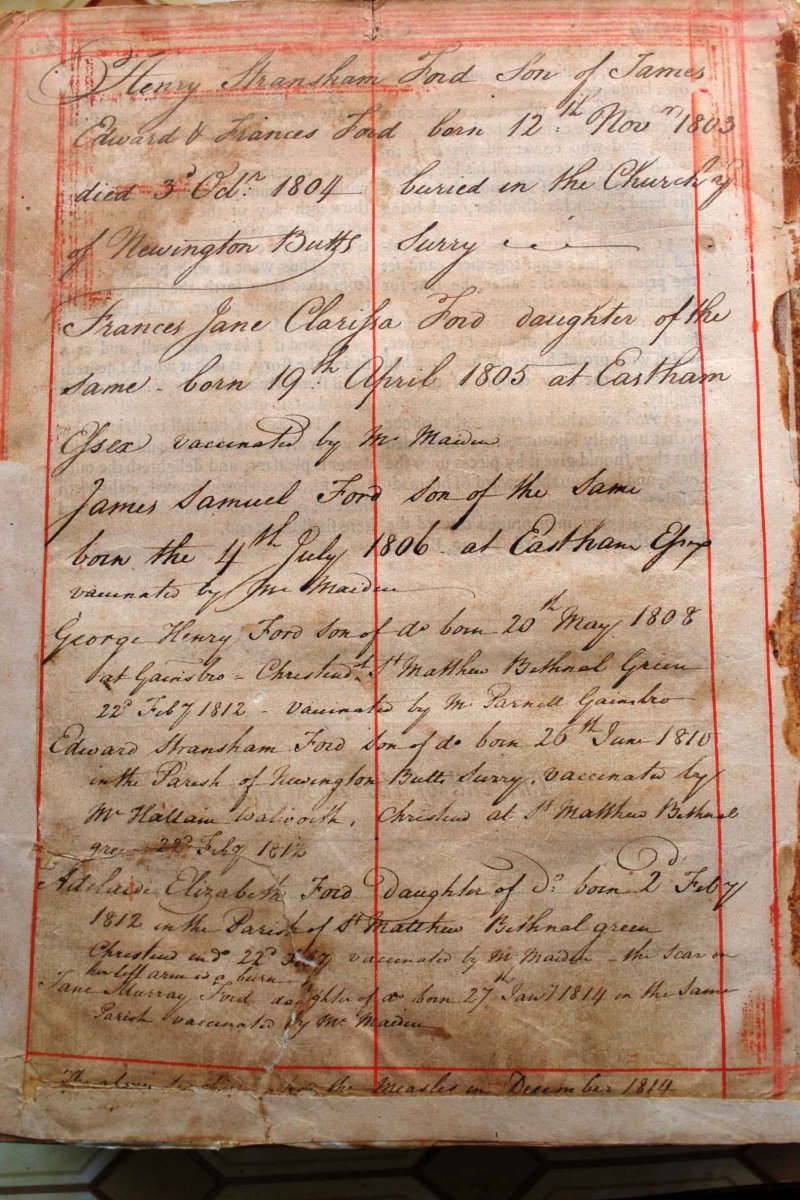 Henry Stransham Ford Son of James
Edward & Frances Ford born 12th Novr 1803
died 3d Octr 1804 buried in the Church y
of Newington Butts Surry
Frances Jane Clarissa Ford daughter of the
same - born 19th April 1805 at Eastham
Essex vaccinated by Mr Maiden
James Samuel Ford Son of the Same
born the 4th July 1806 at Eastham Essex
vaccinated by Mr Maiden
George Henry Ford Son of do born 20th May 1808
at Gainsbro - Christend at St Matthew Bethnal Green
22d Feby 1812 - vaccinated by Mr Parnell Gainsbro
Edward Stransham Ford Son of do born 26th June 1810
in the Parish of Newington Butts Surry, vaccinated by
Mr Hallam Walworth, Christend at St Matthew Bethnal
gree 22d Feby 1812
Adelaide Elizabeth Ford Daughter of Do born 2d Feby
1812 in the Parish of St Matthew Bethnal green
Christend 22d Feby vaccinated by Mr Maiden - the scar on
her left arm is a burn
Jane Murray Ford daughter of do born 27th Jany 1814 in the Same
Parish vaccinated by Mr Maiden
The above the measles in December 1814